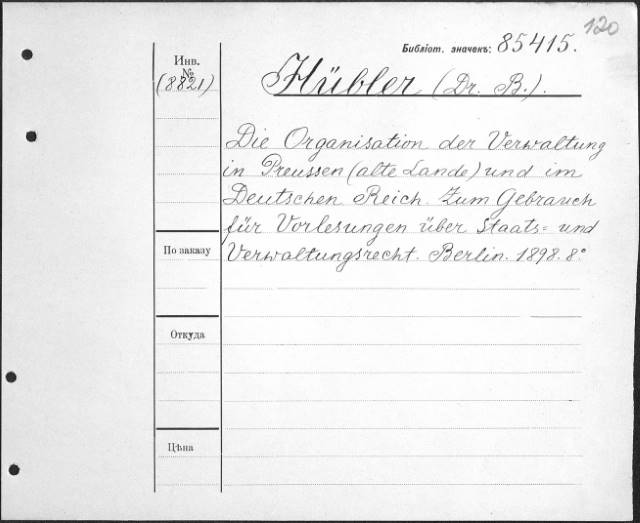 120
Библіот. значекъ: 85415.
Инв.
№
(8821)
Hübler (Dr. B.).
Die Organisation der Verwaltung
in Preussen (alte Lande) und im
Deutschen Reich. Zum Gebrauch
für Vorlesungen über Staats= und
Verwaltungsrecht. Berlin. 1898. 8°.
По заказу
Откуда
Цѣна